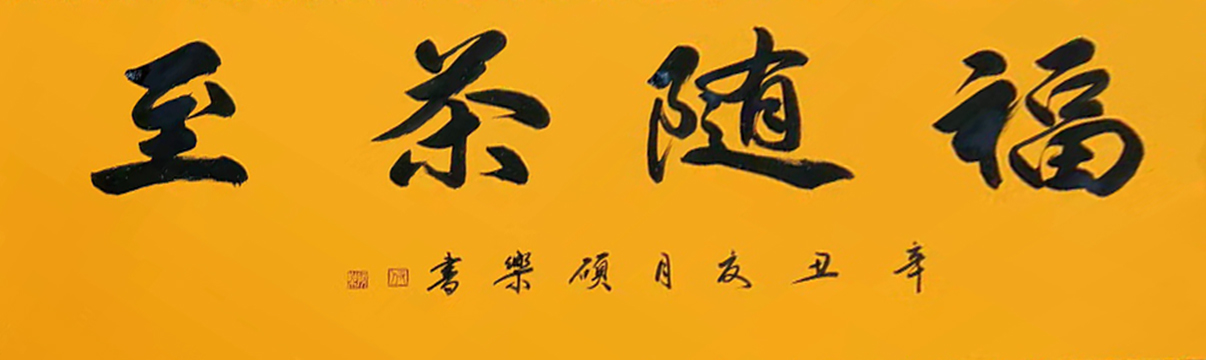 福随茶至
辛丑夏月硕樂書